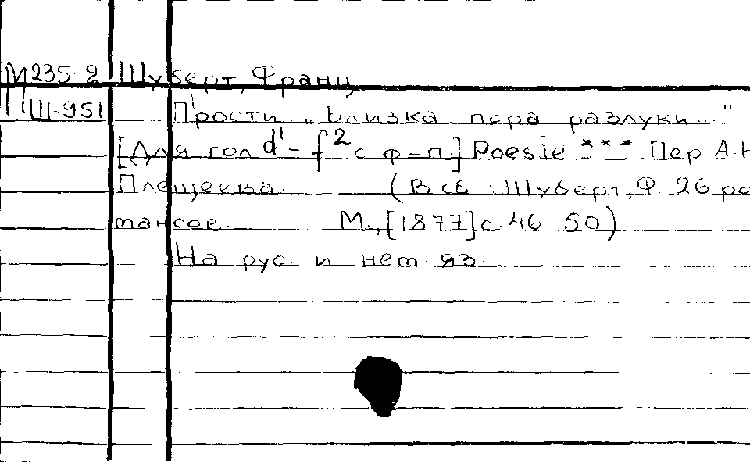 М235-2 Шуберт, Франц
Ш-951 Прости „Близка пора разлуки..."
[Для гол d¹-f² с ф-п] Poesie *** Пер А.Н
Плещеева (В сб Шуберт, Ф 26 ро
мансов М., [1877] с 46 50)
На рус и нем яз